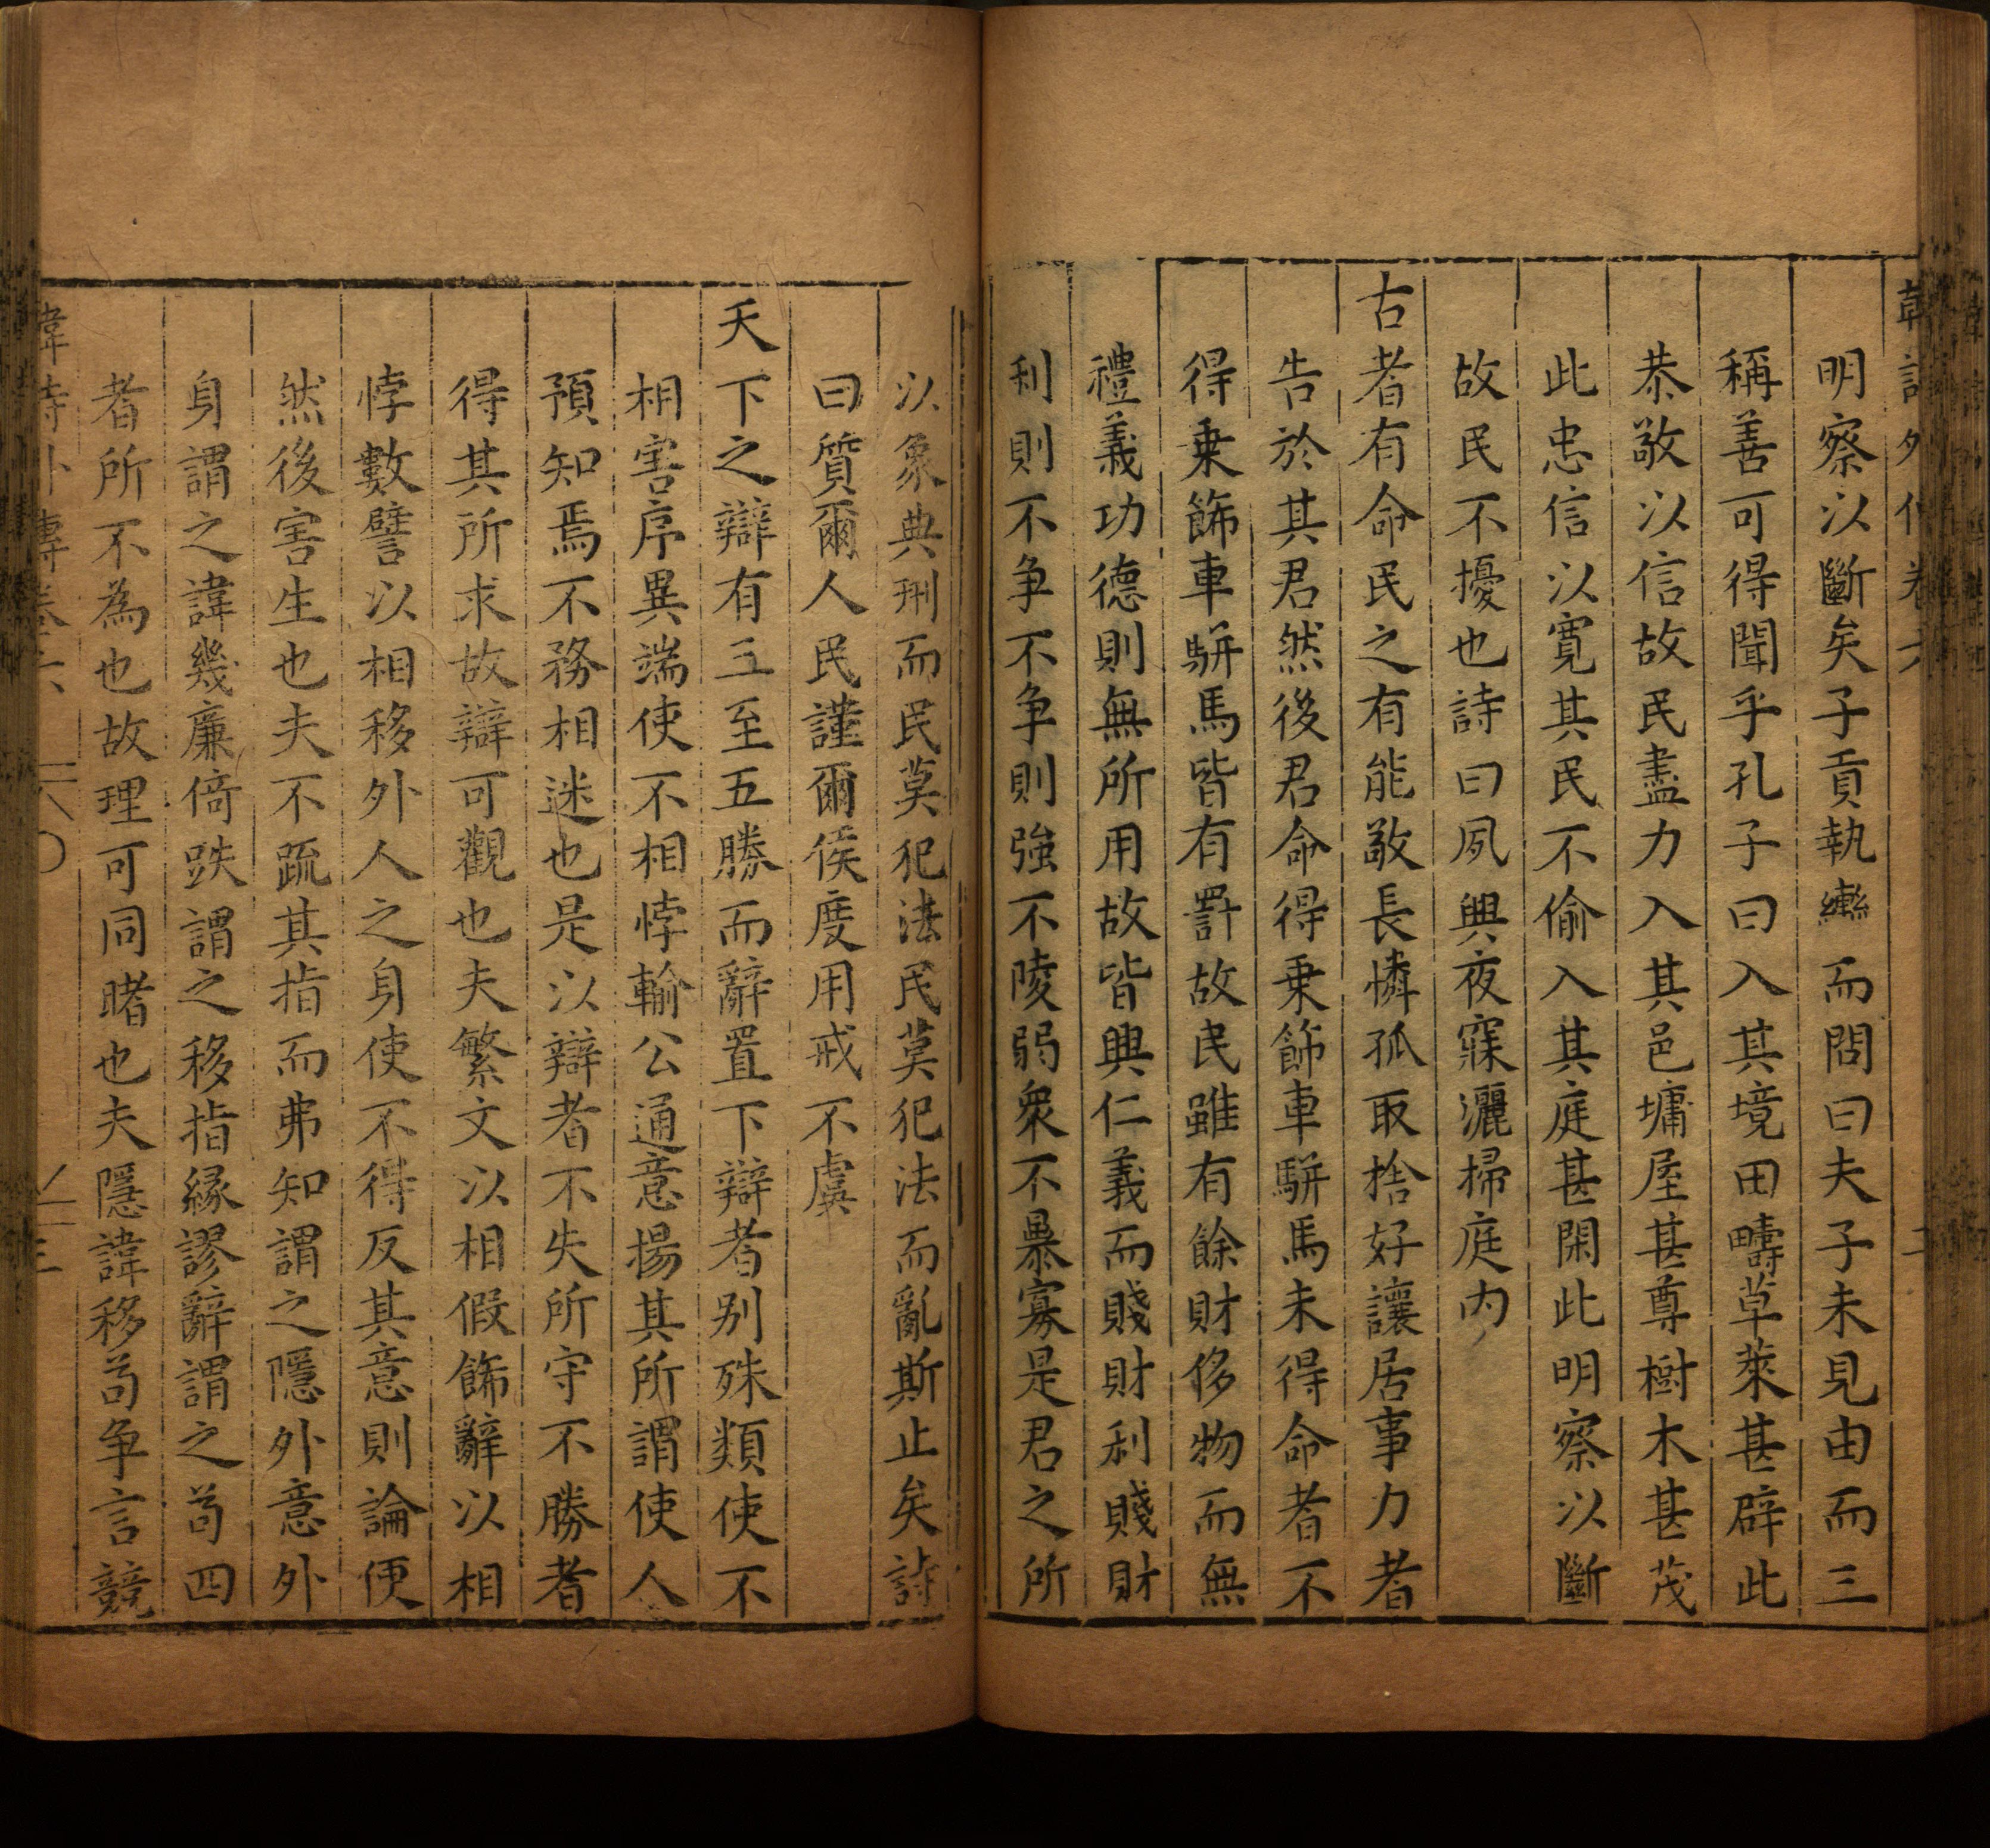 明察以斷矣子貢執轡而問曰夫子未見由而三
稱善可得聞乎孔子曰入其境田疇草萊甚辟此
恭敬以信故民盡力入其邑墉屋甚尊樹木甚茂
此忠信以寬其民不偷入其庭甚閑此明察以斷
故民不擾也詩曰夙興夜寐灑掃庭内
古者有命民之有能敬長憐孤取捨好讓居事力者
告於其君然後君命得乗飾車駢馬未得命者不
得乗飾車駢馬皆有罸故民雖有餘財侈物而無
禮義功德則無所用故皆興仁義而賤財利賤財
利則不争不争則強不陵弱衆不暴寡是君之所
以象典刑而民莫犯法民莫犯法而亂斯止矣詩
曰質爾人民謹爾侯度用戒不虞
天下之辯有三至五勝而辭置下辯者别殊類使不
相害序異端使不相悖輸公通意揚其所謂使人
預知焉不務相迷也是以辯者不失所守不勝者
得其所求故辯可觀也夫繁文以相假飾辭以相
悖數譬以相移外人之身使不得反其意則論便
然後害生也夫不䟽其指而弗知謂之隱外意外
身謂之諱幾廉倚跌謂之移指縁謬辭謂之苟四
者所不為也故理可同睹也夫隱諱移苟争言競